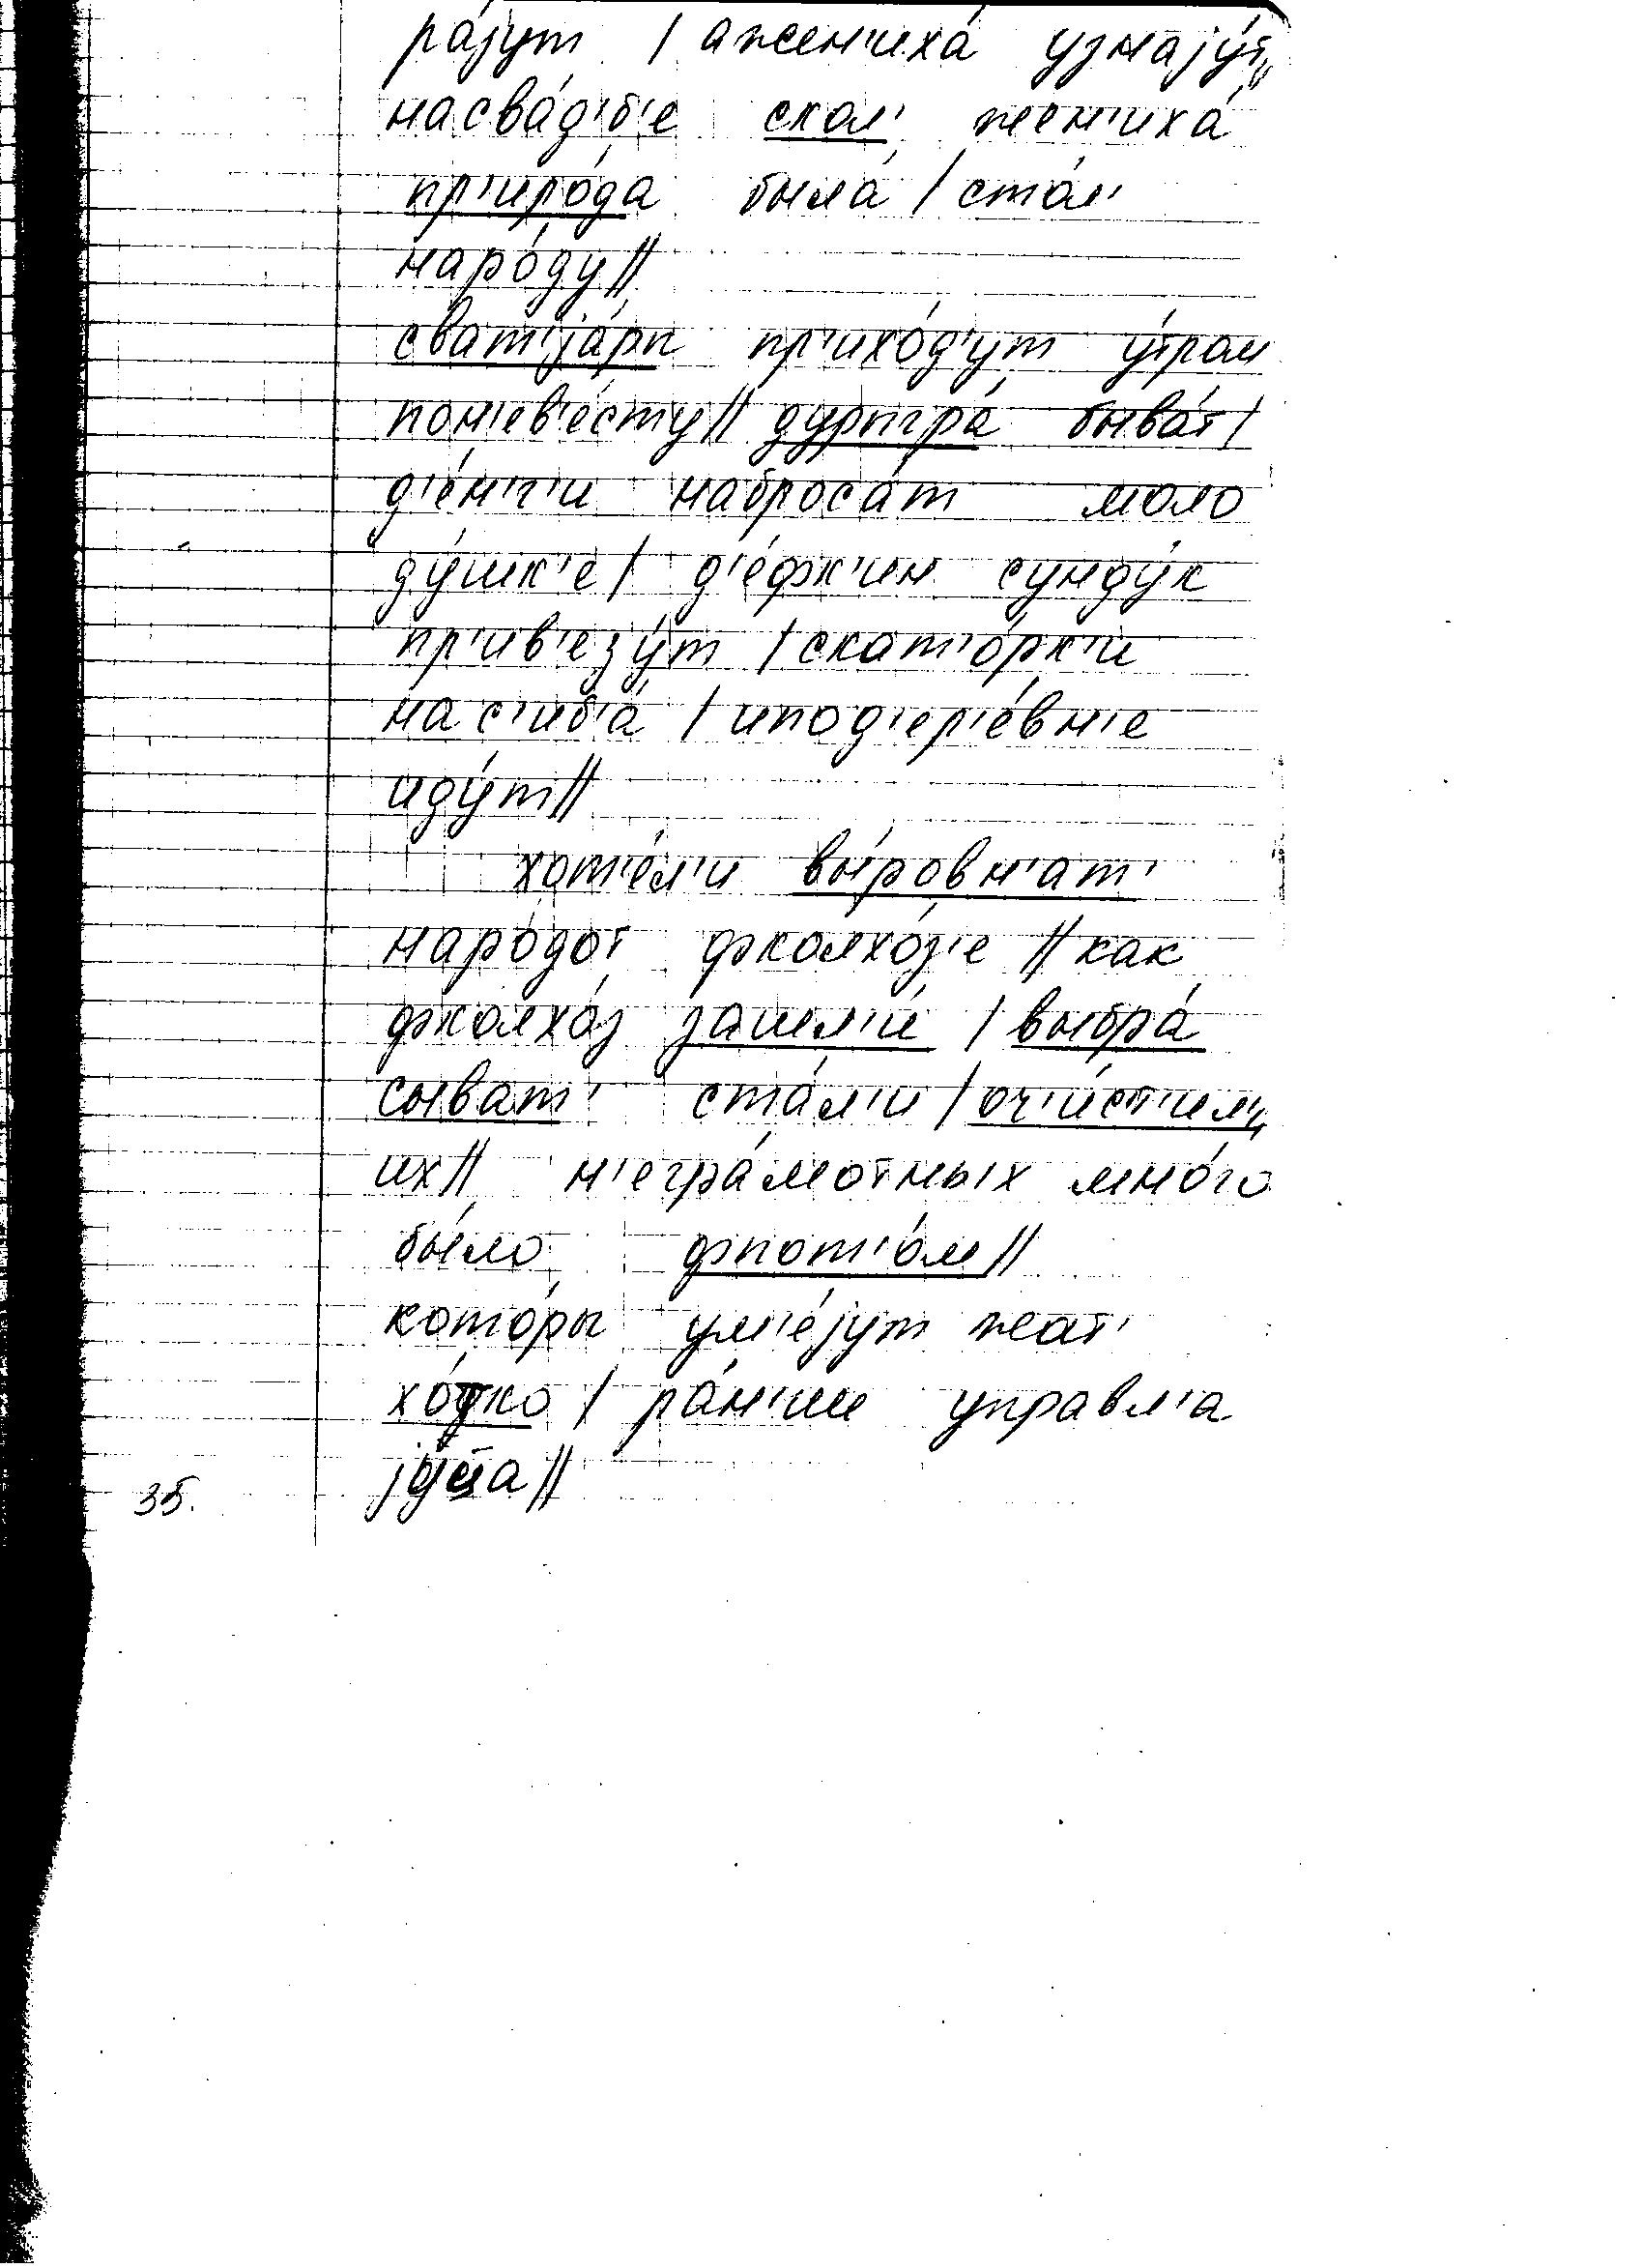 ра́јут / ажен'иха́ узнају́т//
насва́д'б'е скол' жен'иха́
пр'иро́да была́ / сто́л'
наро́ду//
сват'ја́ры пр'ихо́д'ут у́тром
пон'ев'е́сту// дурыгра́ быва́т /
д'е́н'г'и наброса́т моло
ду́шк'е / д'е́фк'ин сунду́к
пр'ив'езу́т / скат'о́рк'и
нас'иб'а́ / ипод'ер'е́вн'е
иду́т//
хот'е́л'и вы́ровн'ат'
наро́дот фколхо́з'е // как
фколхо́з зашл'и́ / выбра́
сыват' ста́л'и / оч'и́ст'ил'и
их// н'егра́мотных мно́го
бы́ло фпот'о́м//
кото́ры ум'е́јут жат'
хо́дко / ра́н'ше управл'а
јуца//
35.